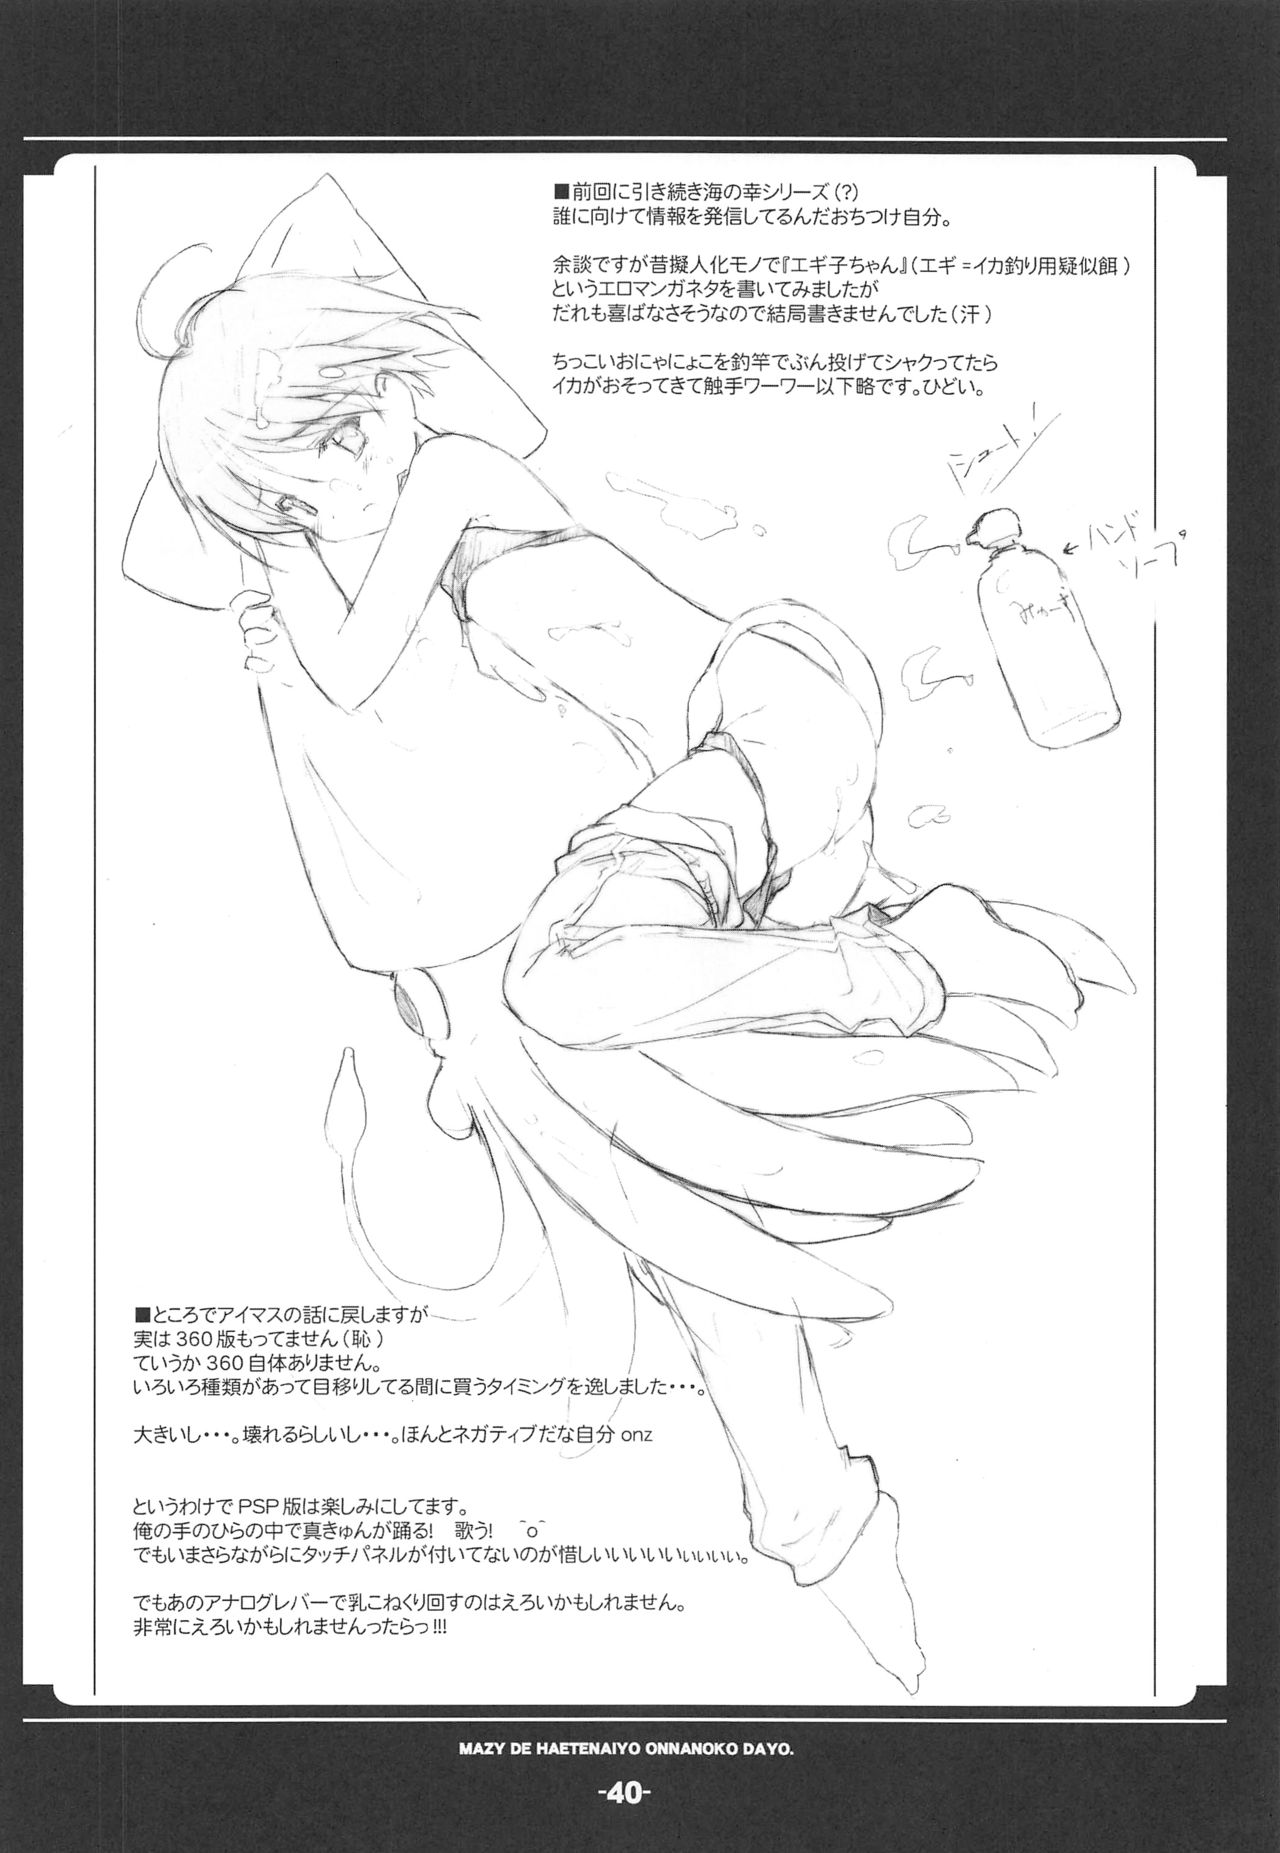 ■前回に引き続き海の幸シリーズ(?)
誰に向けて情報を発信してるんだおちつけ自分。
余談ですが昔擬人化モノで『エギ子ちゃん』(エギ=イカ釣り用疑似餌)
というエロマンガネタを書いてみましたが
だれも喜ばなさそうなので結局書きませんでした(汗)
ちっこいおにゃにょこを釣竿でぶん投げてシャクってたら
イカがおそってきて触手ワーワー以下略です。ひどい。
シュート!
←ハンド
ソープ
■ところでアイマスの話に戻しますが
実は360版もってません(恥)
ていうか360自体ありません。
いろいろ種類があって目移りしてる間に買うタイミングを逸しました・・・。
大きいし・・・。壊れるらしいし・・・。ほんとネガティブだな自分 onz
というわけでPSP版は楽しみにしてます。
俺の手のひらの中で真きゅんが踊る! 歌う! ^o^
でもいまさらながらにタッチパネルが付いてないのが惜しいいいいいぃぃぃぃ。
でもあのアナログレバーで乳こねくり回すのはえろいかもしれません。
非常にえろいかもしれませんったらっ!!!
MAZY DE HAETENAIYO ONNANOKO DAYO.
-40-